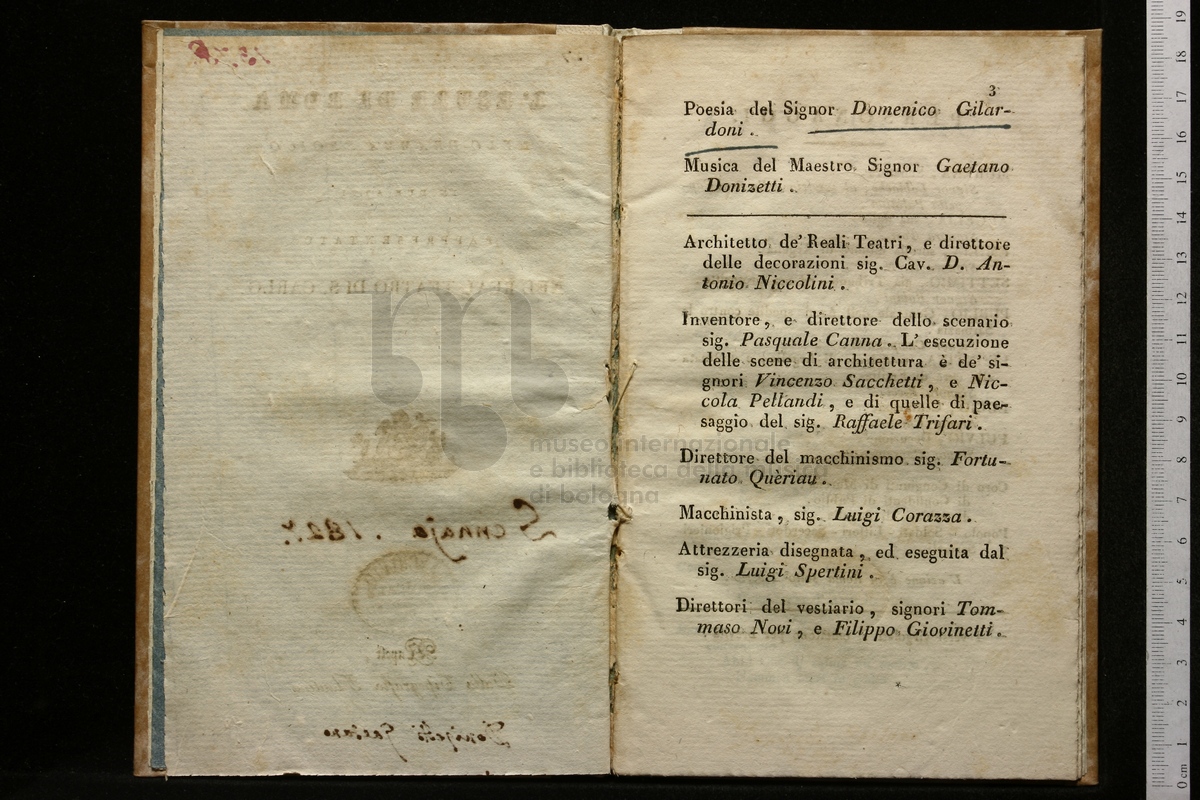 3
Poesia del Signor Domenico Gilar-
doni .
Musica del Maestro Signor Gaetano
Donizetti .
Architetto de' Reali Teatri, e direttore
delle decorazioni sig. Cav. D. An-
tonio Niccolini .
Inventore, e direttore dello scenario
sig. Pasquale Canna. L' esecuzione
delle scene di architettura è de' si-
gnori Vincenzo Sacchetti, e Nic-
cola Pellandi, e di quelle di pae-
saggio del sig. Raffaele Trifari .
Direttore del macchinismo sig. Fortu-
nato Quèriau .
Macchinista, sig. Luigi Corazza .
Attrezzeria disegnata, ed eseguita dal
sig. Luigi Spertini .
Direttori del vestiario, signori Tom-
maso Novi, e Filippo Giovinetti .
museo internazionale
e biblioteca della musica
di bologna
L'ESULE DI ROMA
NEL REAL TEATRO DI S. CARLO
Gennajo . 182
Napoli
Donizetti Gaetano
19
18
17
16
15
14
13
12
11
10
9
8
7
6
5
4
3
2
1
0 cm